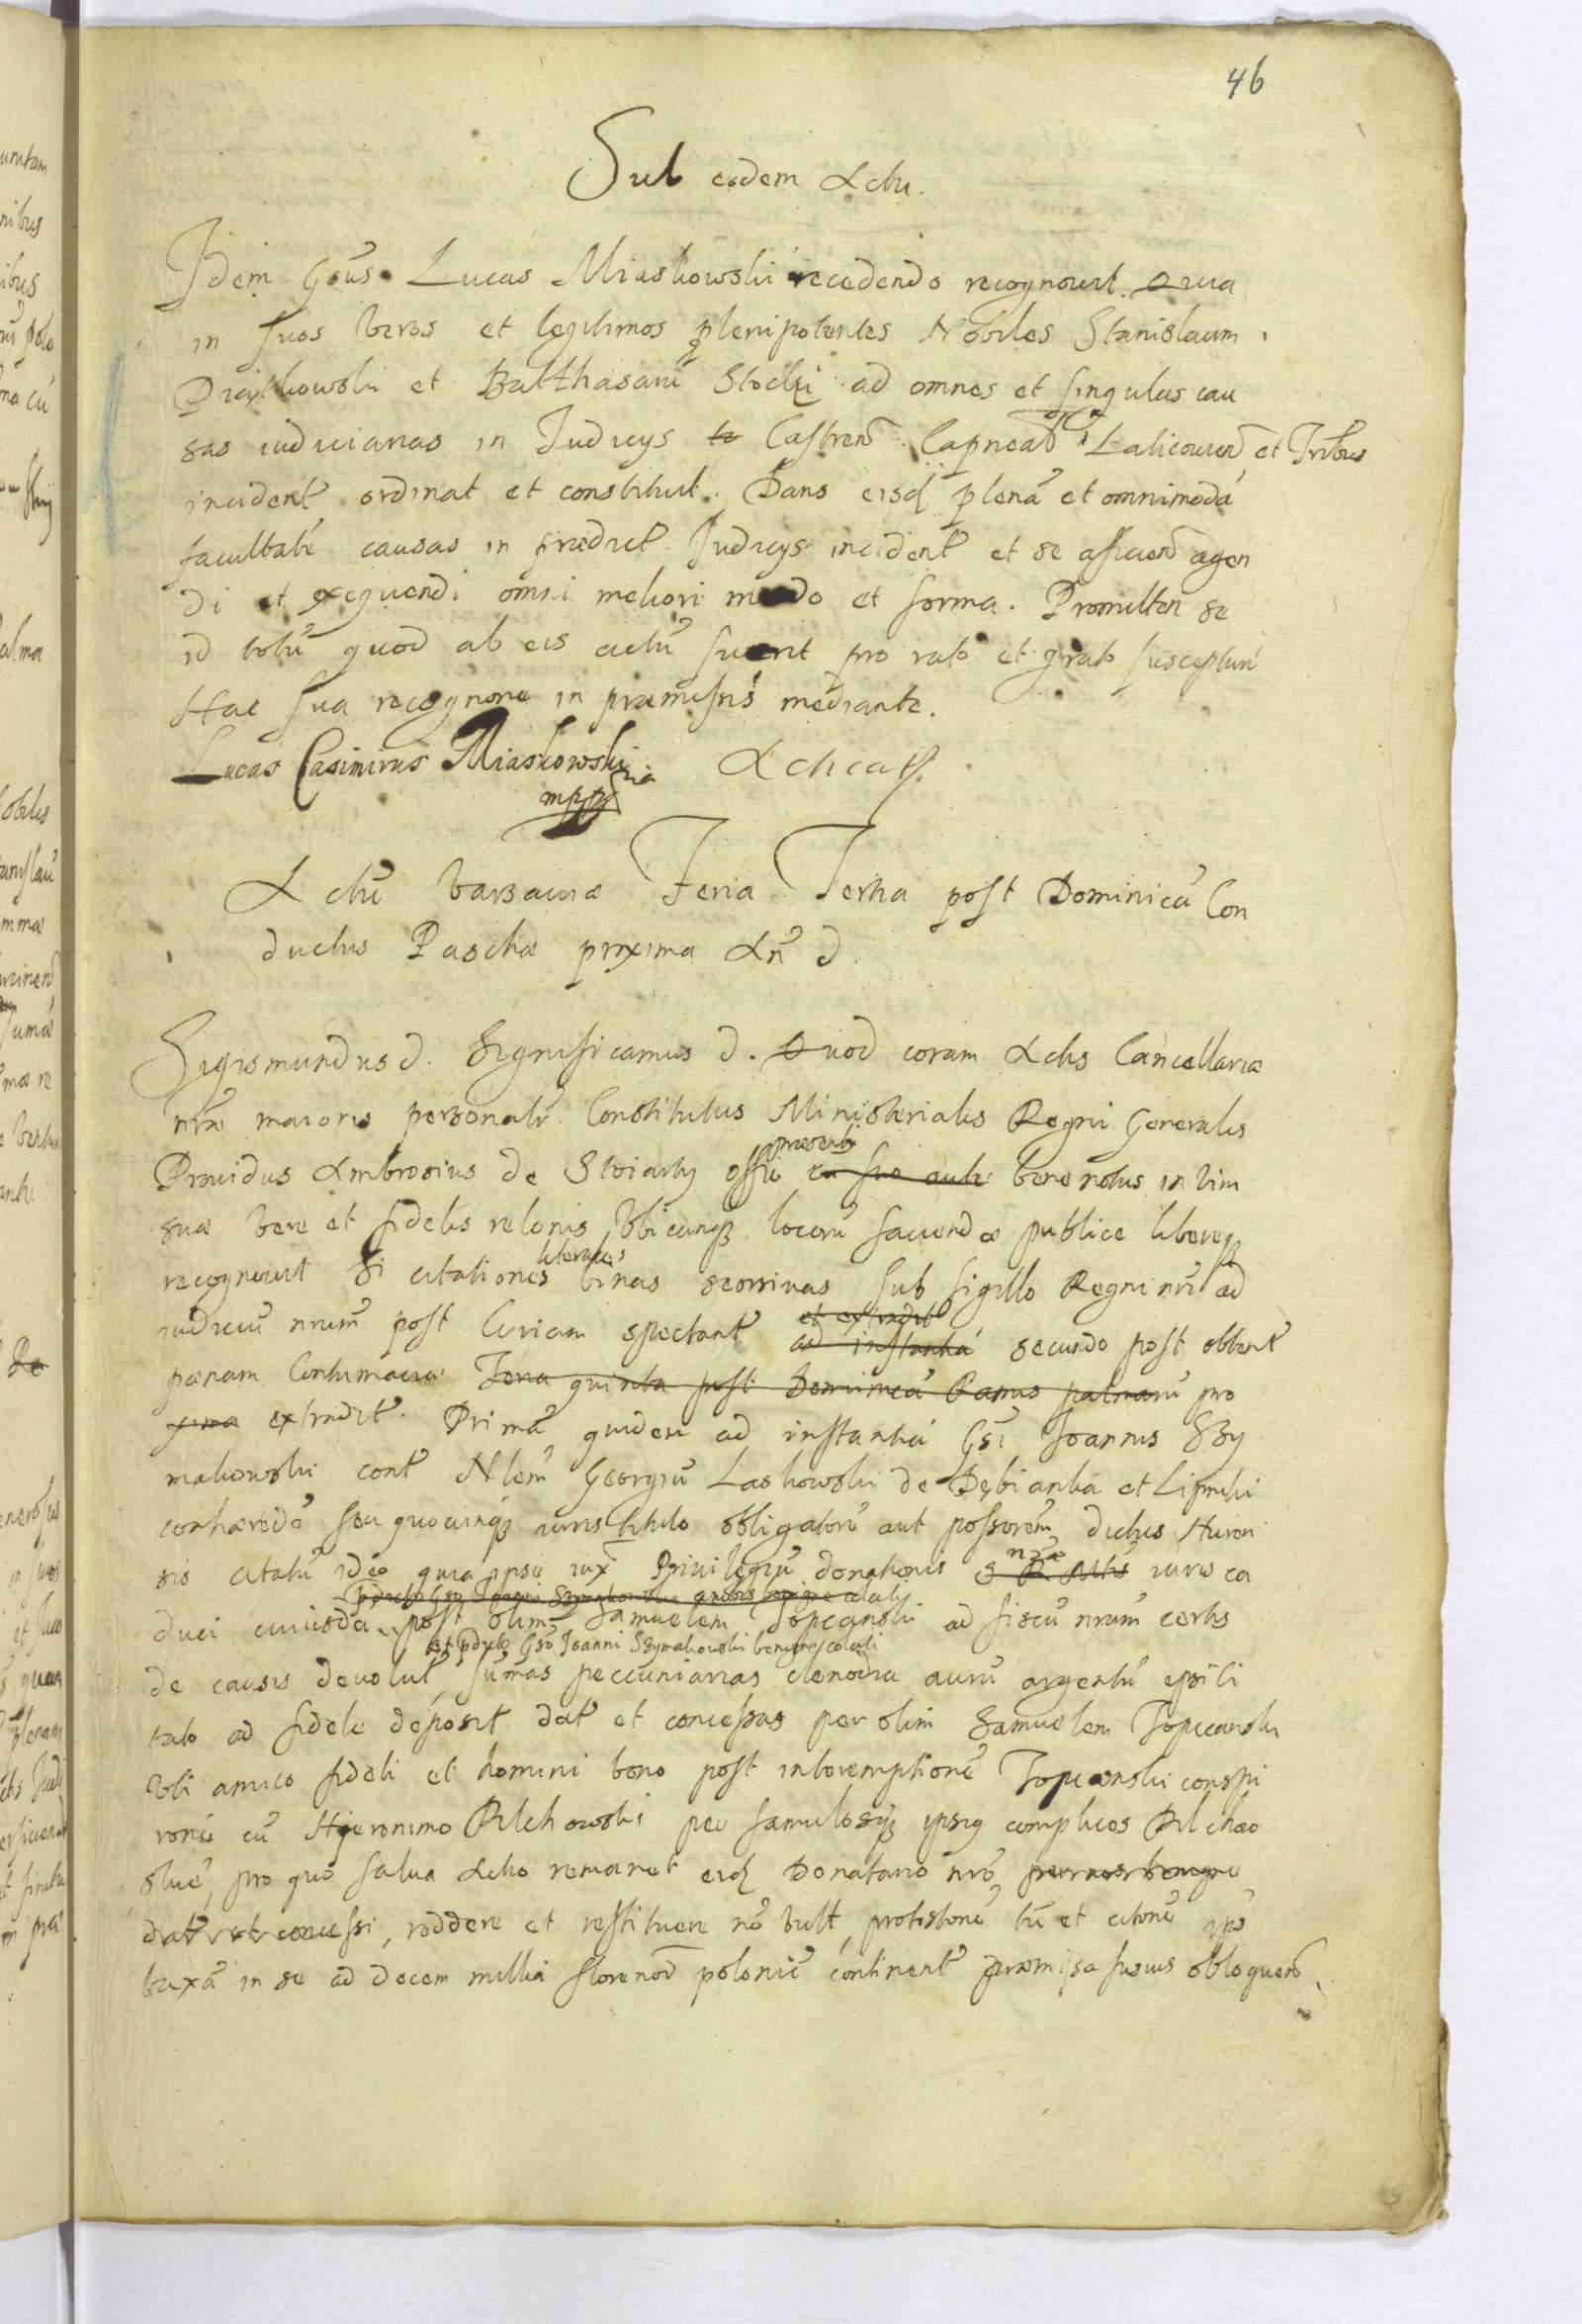 46
Sub eodem Actu.
Idem Gsus Lucas Miaskowski recedendo recognovit. Quia
in suos veros et legitimos plenipotentes Nobiles Stanislaum
et Balthasarū Stocki ad omnes et singulas cau
sas iudiciarias in Iudicys Castren Capneal et Tribus
incident ordinat et constituit. Dans eisd plenā et omnimodā
facultatē causas in prædict Iudicys incident et se afficien agen
di et exequendi omni meliori modo et forma. Promitten se
id totū quod ab eis actū fuerit pro rato et grato suscepturū
Hac sua recognone in præmissis mediante.
Lucas Casimirus Miaskowski Acticat
mpp
Actū Varsaviæ Feria Tertia post Dominicā Con
ductus Paschæ proxima An d.
Sigismundus d. Significamus d. Quod coram Actis Cancellariæ
nræ maioris personalr Constitutus Ministerialis Regni Generalis
Providus Ambrosius de offio præsenti bene notus in vim
suæ veræ et fidelis relonis ubicunq locorū faciendæ publice libereq
recognovit Si citationes literales binas seorsivas sub sigillo Regni nri ad
iudiciū nrum post Curiam spectant et extradit ad instantiā secundo post obtent
pœnam Contumaciæ Feria quinta post Dominicā Ramis palmarū pro
xima extradit. Primā quidem ad instantiā Gsi Joannis Szy
makowski cont Nlem Georgiū Laskowski de Dębianka et Lipinki
conhæredē seu quocunq iuris titulo obligatoriū aut possorem dictus Huius
sis citatū ideo quia ipse iux Privilegiū donationis nræ iuris ca
Gso Joanni Szymakowski
duci cuiusdā post olim Samuelem Topcanski ad fiscū nrum certis
et pdicto Gso Joanni Szymakowski benigne collati
de causis devolut, sumas peccuniarias clenodia aurū argentū
ad fidele deposit dat et concessas per olim Samuelem Topicanski
Uti amico fideli et homini bono post interemptionē Topicanski conspi
ronē cū Hieronimo Pilchowski per famulosq ipsig complices Pilcho
pro quo salva Actio remanet eid Donatario nro
concessi, reddere et restituere nō vult, protestonē tū et citonē ipo
taxā in se ad decem millia florenor poloniē continent præmissa fusius obloquen